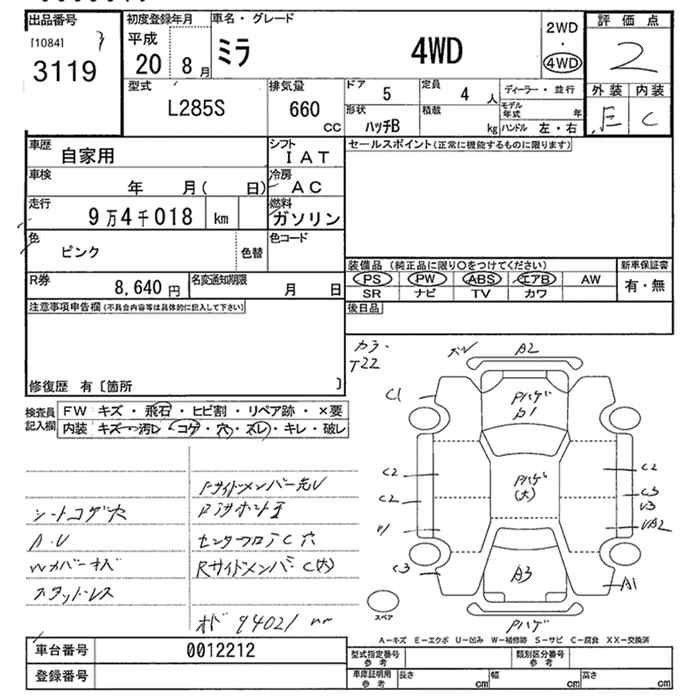 出品番号
[1084]
3119
初度登録年月
平成
20 8月
車名・グレード
ミラ 4WD
2WD
・
4WD
評価点
2
外装 内装
E C
型式
L285S
排気量
660
CC
ドア
5
定員
4 人
ディーラー・並行
形状
ハッチB
積載
kg
モデル年式 年
ハンドル 左・右
車歴
自家用
シフト
IAT
セールスポイント(正常に機能するものに限ります)
車検
年 月( 日)
冷房
AC
走行
9万4千018 km
燃料
ガソリン
色
ピンク
色替
色コード
装備品 (純正品に限り〇をつけてください)
新車保証書
PS PW ABS エアB AW
有・無
SR ナビ TV カワ
R券
8,640 円
名変通知期限
月 日
後日品
注意事項申告欄(不具合内容等は具体的に記入して下さい)
修復歴 有〔箇所 〕
検査員
記入欄
FW キズ・飛石・ヒビ割・リペア跡・×要
内装 キズ・汚レ・コゲ・穴・スレ・キレ・破レ
カラー
T22
A2
C1
Pハゲ
C2
C2
Pハゲ
(大)
C2
C3
V3
C3
A3
A1
Pハゲ
スペア
シートコゲ穴
A・U
スタッドレス
Rサイドメンバー C(大)
オド 94021
A－キズ E－エクボ U－凹み W－補修跡 S－サビ C－腐食 XX－交換済
車台番号
0012212
登録番号
型式指定番号
参考
類別区分番号
参考
車庫証明用
参考
長さ cm
幅 cm
高さ cm